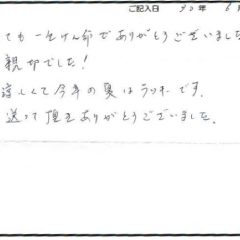 ご記入日 30年 6
ても一生けん命でありがとうございました
親切でした!
涼しくて今年の夏はラッキーです。
送って頂きありがとうございました。